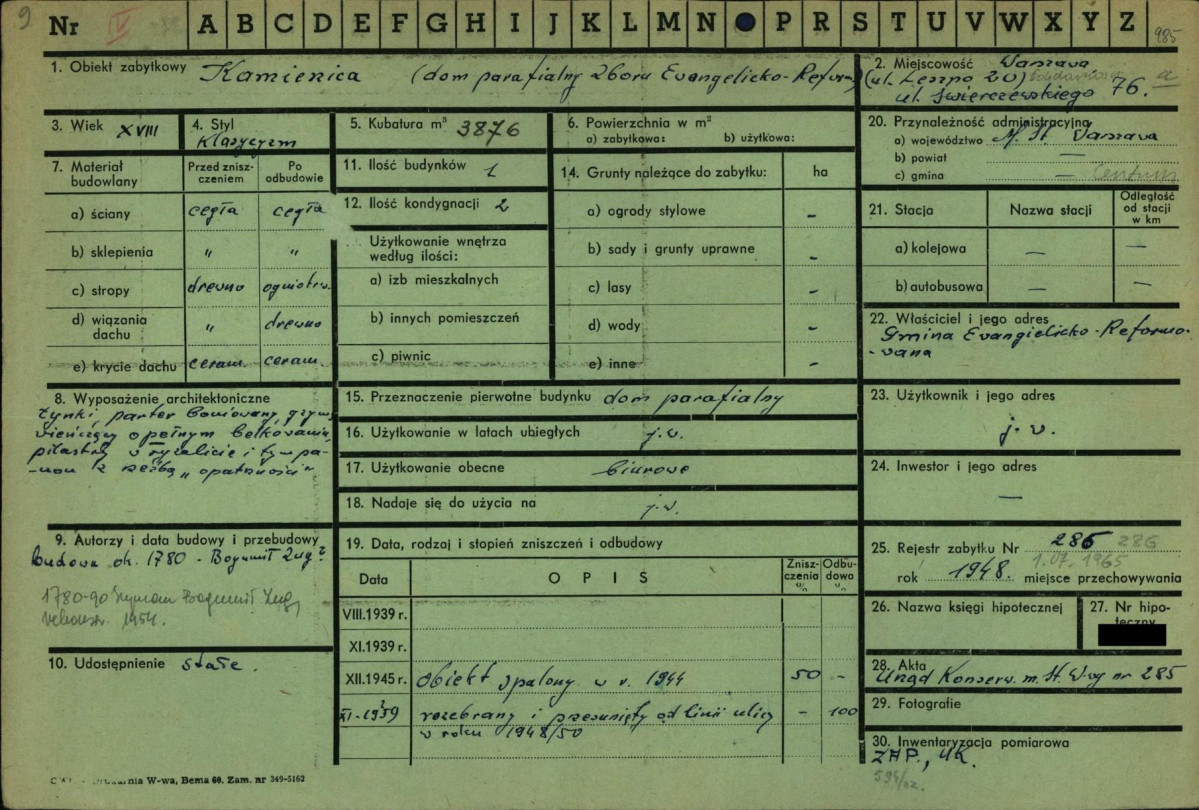 9
Nr IV A B C D E F G H I J K L M N P R S T U V W X Y Z 985
1. Obiekt zabytkowy Kamienica (dom parafialny Zboru Evangelicko-Reform)
2. Miejscowość Warszawa
(ul. Leszno 20) Solidarności
ul. Świerczewskiego 76. a
3. Wiek XVIII
4. Styl
Klasycyzm
5. Kubatura m³ 3876
6. Powierzchnia w m²
a) zabytkowa: b) użytkowa:
7. Materiał budowlany
Przed zniszczeniem
Po odbudowie
a) ściany cegła cegła
b) sklepienia " "
c) stropy drewno ogniotrw.
d) wiązania dachu " drewno
e) krycie dachu ceram. ceram.
11. Ilość budynków 1
12. Ilość kondygnacji 2
Użytkowanie wnętrza
według ilości:
a) izb mieszkalnych
b) innych pomieszczeń
c) piwnic
14. Grunty należące do zabytku: ha
a) ogrody stylowe -
b) sady i grunty uprawne -
c) lasy -
d) wody -
e) inne -
20. Przynależność administracyjna
a) województwo M. St. Warszawa
b) powiat —
c) gmina — Centrum
21. Stacja Nazwa stacji
Odległość
od stacji
w km
a) kolejowa — —
b) autobusowa — —
22. Właściciel i jego adres
Gmina Evangielicko-Reformo-
-vana
8. Wyposażenie architektoniczne
tynki, parter boniowany, gzyms
wieńczący o pełnym belkowaniu,
pilastry w ryzalicie i tympa-
-non z rzeźbą "opatrzności"
15. Przeznaczenie pierwotne budynku dom parafialny
16. Użytkowanie w latach ubiegłych j.w.
17. Użytkowanie obecne biurowe
18. Nadaje się do użycia na j.w.
23. Użytkownik i jego adres
j.w.
24. Inwestor i jego adres
—
9. Autorzy i data budowy i przebudowy
budowa ok. 1780 - Bogumił Zug?
1780-90 Szymon Bogumił Zug,
rekonstr. 1954.
10. Udostępnienie stałe.
19. Data, rodzaj i stopień zniszczeń i odbudowy
Data OPIS Zniszczenia % Odbudowa %
VIII.1939 r.
XI.1939 r.
XII.1945 r. Obiekt spalony w r. 1944 50 -
XI-1959 rozebrany i przesunięty od linii ulicy - 100
w roku 1948/50
25. Rejestr zabytku Nr 286 286
1.07.1965
rok 1948. miejsce przechowywania
26. Nazwa księgi hipotecznej
27. Nr hipo-
teczny
28. Akta
Urząd Konserw. m. St. W-wy nr 285
29. Fotografie
30. Inwentaryzacja pomiarowa
ZAP., UK.
594/62.
W-wa, Bema 60. Zam. nr 349-5162